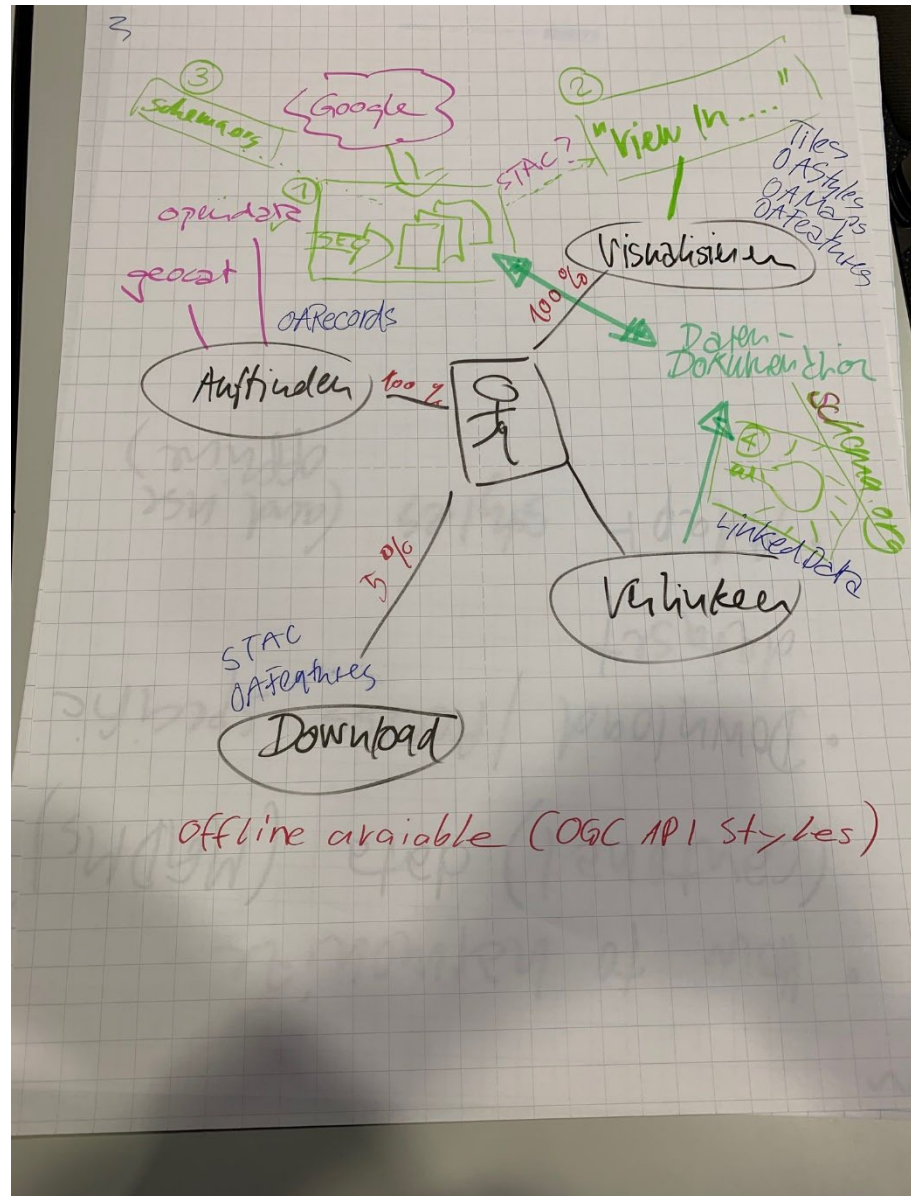 3
③
schema.org
Google
②
"View in ...."
STAC?
Tiles
OAStyles
OAMaps
OAFeatures
①
opendata
SEO
geocat
Visualisieren
OARecords
100%
Daten-
Dokumenthion
Auffinden
100%
schema.org
④
Linked Data
5%
Verlinkeen
STAC
OAFeatures
Download
Offline avaiable (OGC API Styles)